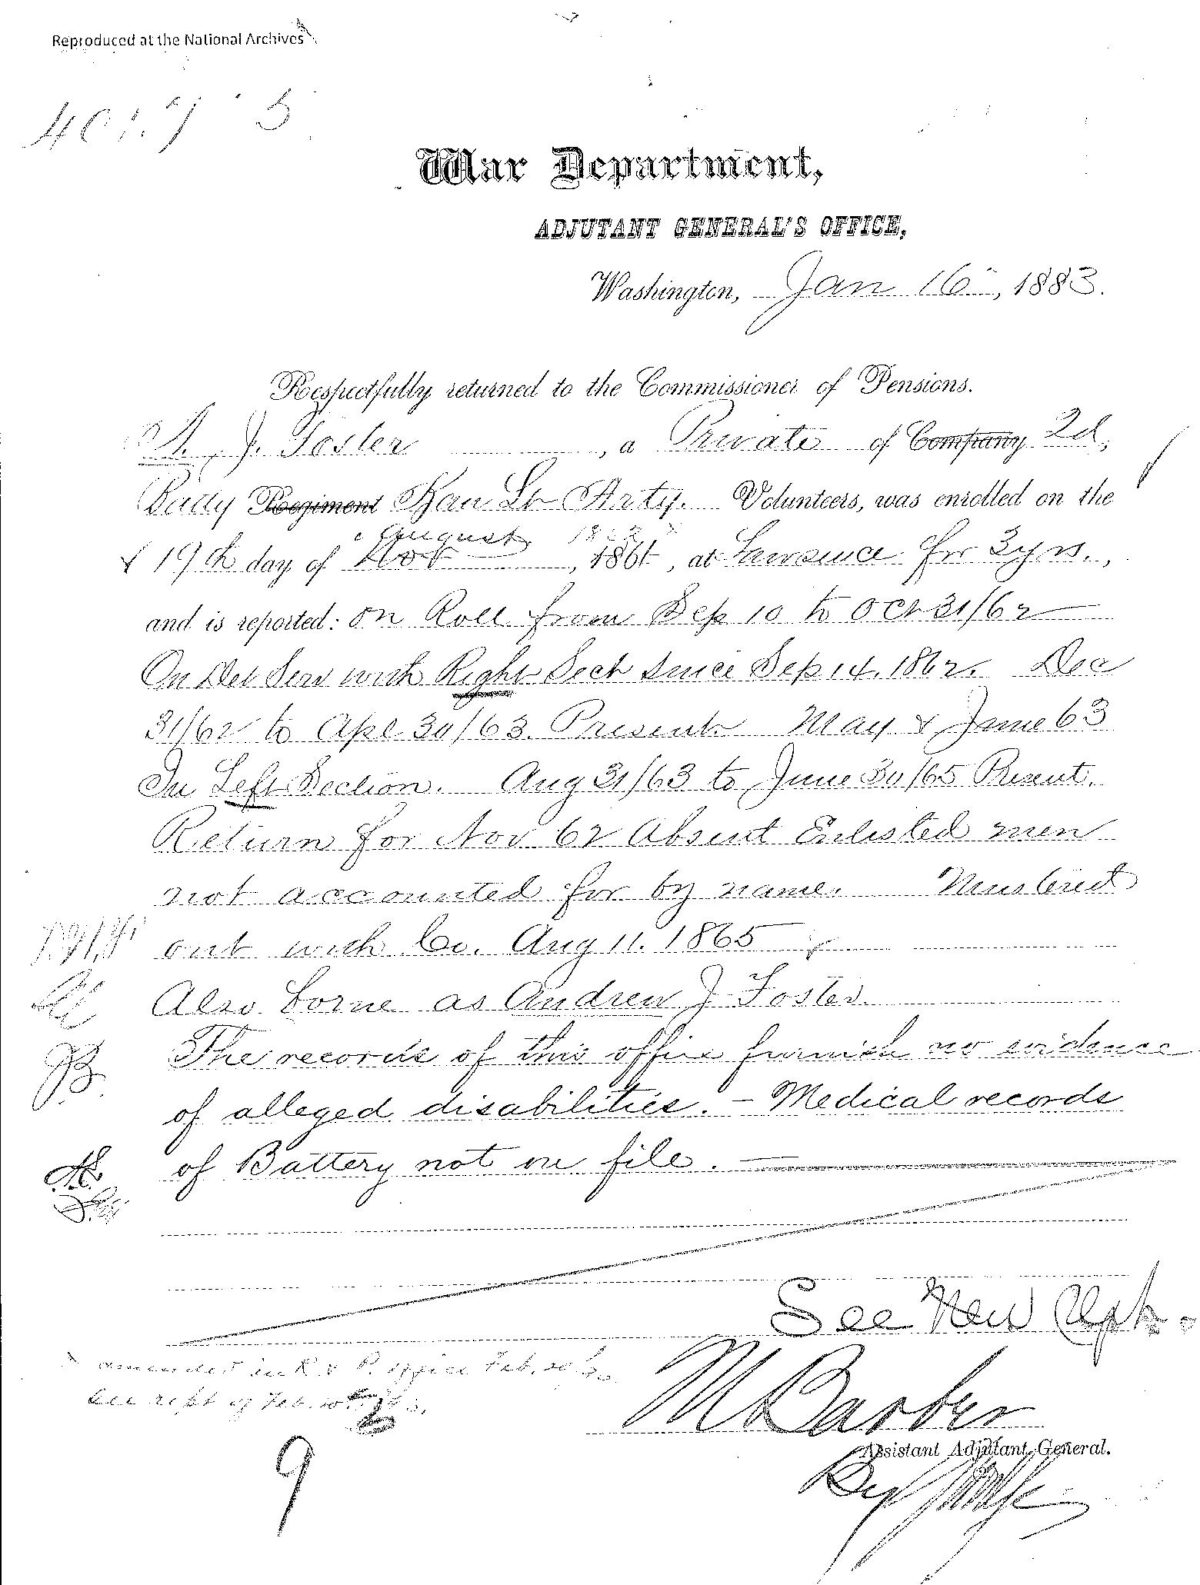 Reproduced at the National Archives
War Department,
ADJUTANT GENERAL'S OFFICE,
Washington, Jan 16, 1883.
Respectfully returned to the Commissioner of Pensions.
A. J. Foster, a Private of Company 2d,
Batty Regiment Kan Lt Arty. Volunteers, was enrolled on the
August 1862
19th day of Nov, 1861, at Lawrence for 3 yrs.,
and is reported: on Roll from Sep 10 to Oct 31/62
On Det Serv with Right Sect since Sep 14. 1862. Dec
31/62 to Apl 30/63. Present. May & June 63
In Left Section. Aug 31/63 to June 30/65 Present.
Return for Nov 62 Absent Enlisted men
not accounted for by name. Mustered
out with Co. Aug 11. 1865
Also borne as Andrew J Foster.
The records of this office furnish no evidence
of alleged disabilities. - Medical records
of Battery not on file.
See New
amended in R. & P. office Feb.
See rept of Feb.
M Barber
Assistant Adjutant General.
By
9